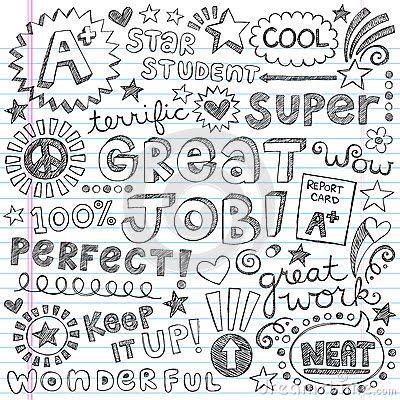 A+
STAR
STUDENT
COOL
terrific
SUPER
GREAT
JOB!
WOW
REPORT
CARD
A+
100%
PERFECT!
great
work
KEEP
IT UP!
NEAT
WONDERFUL